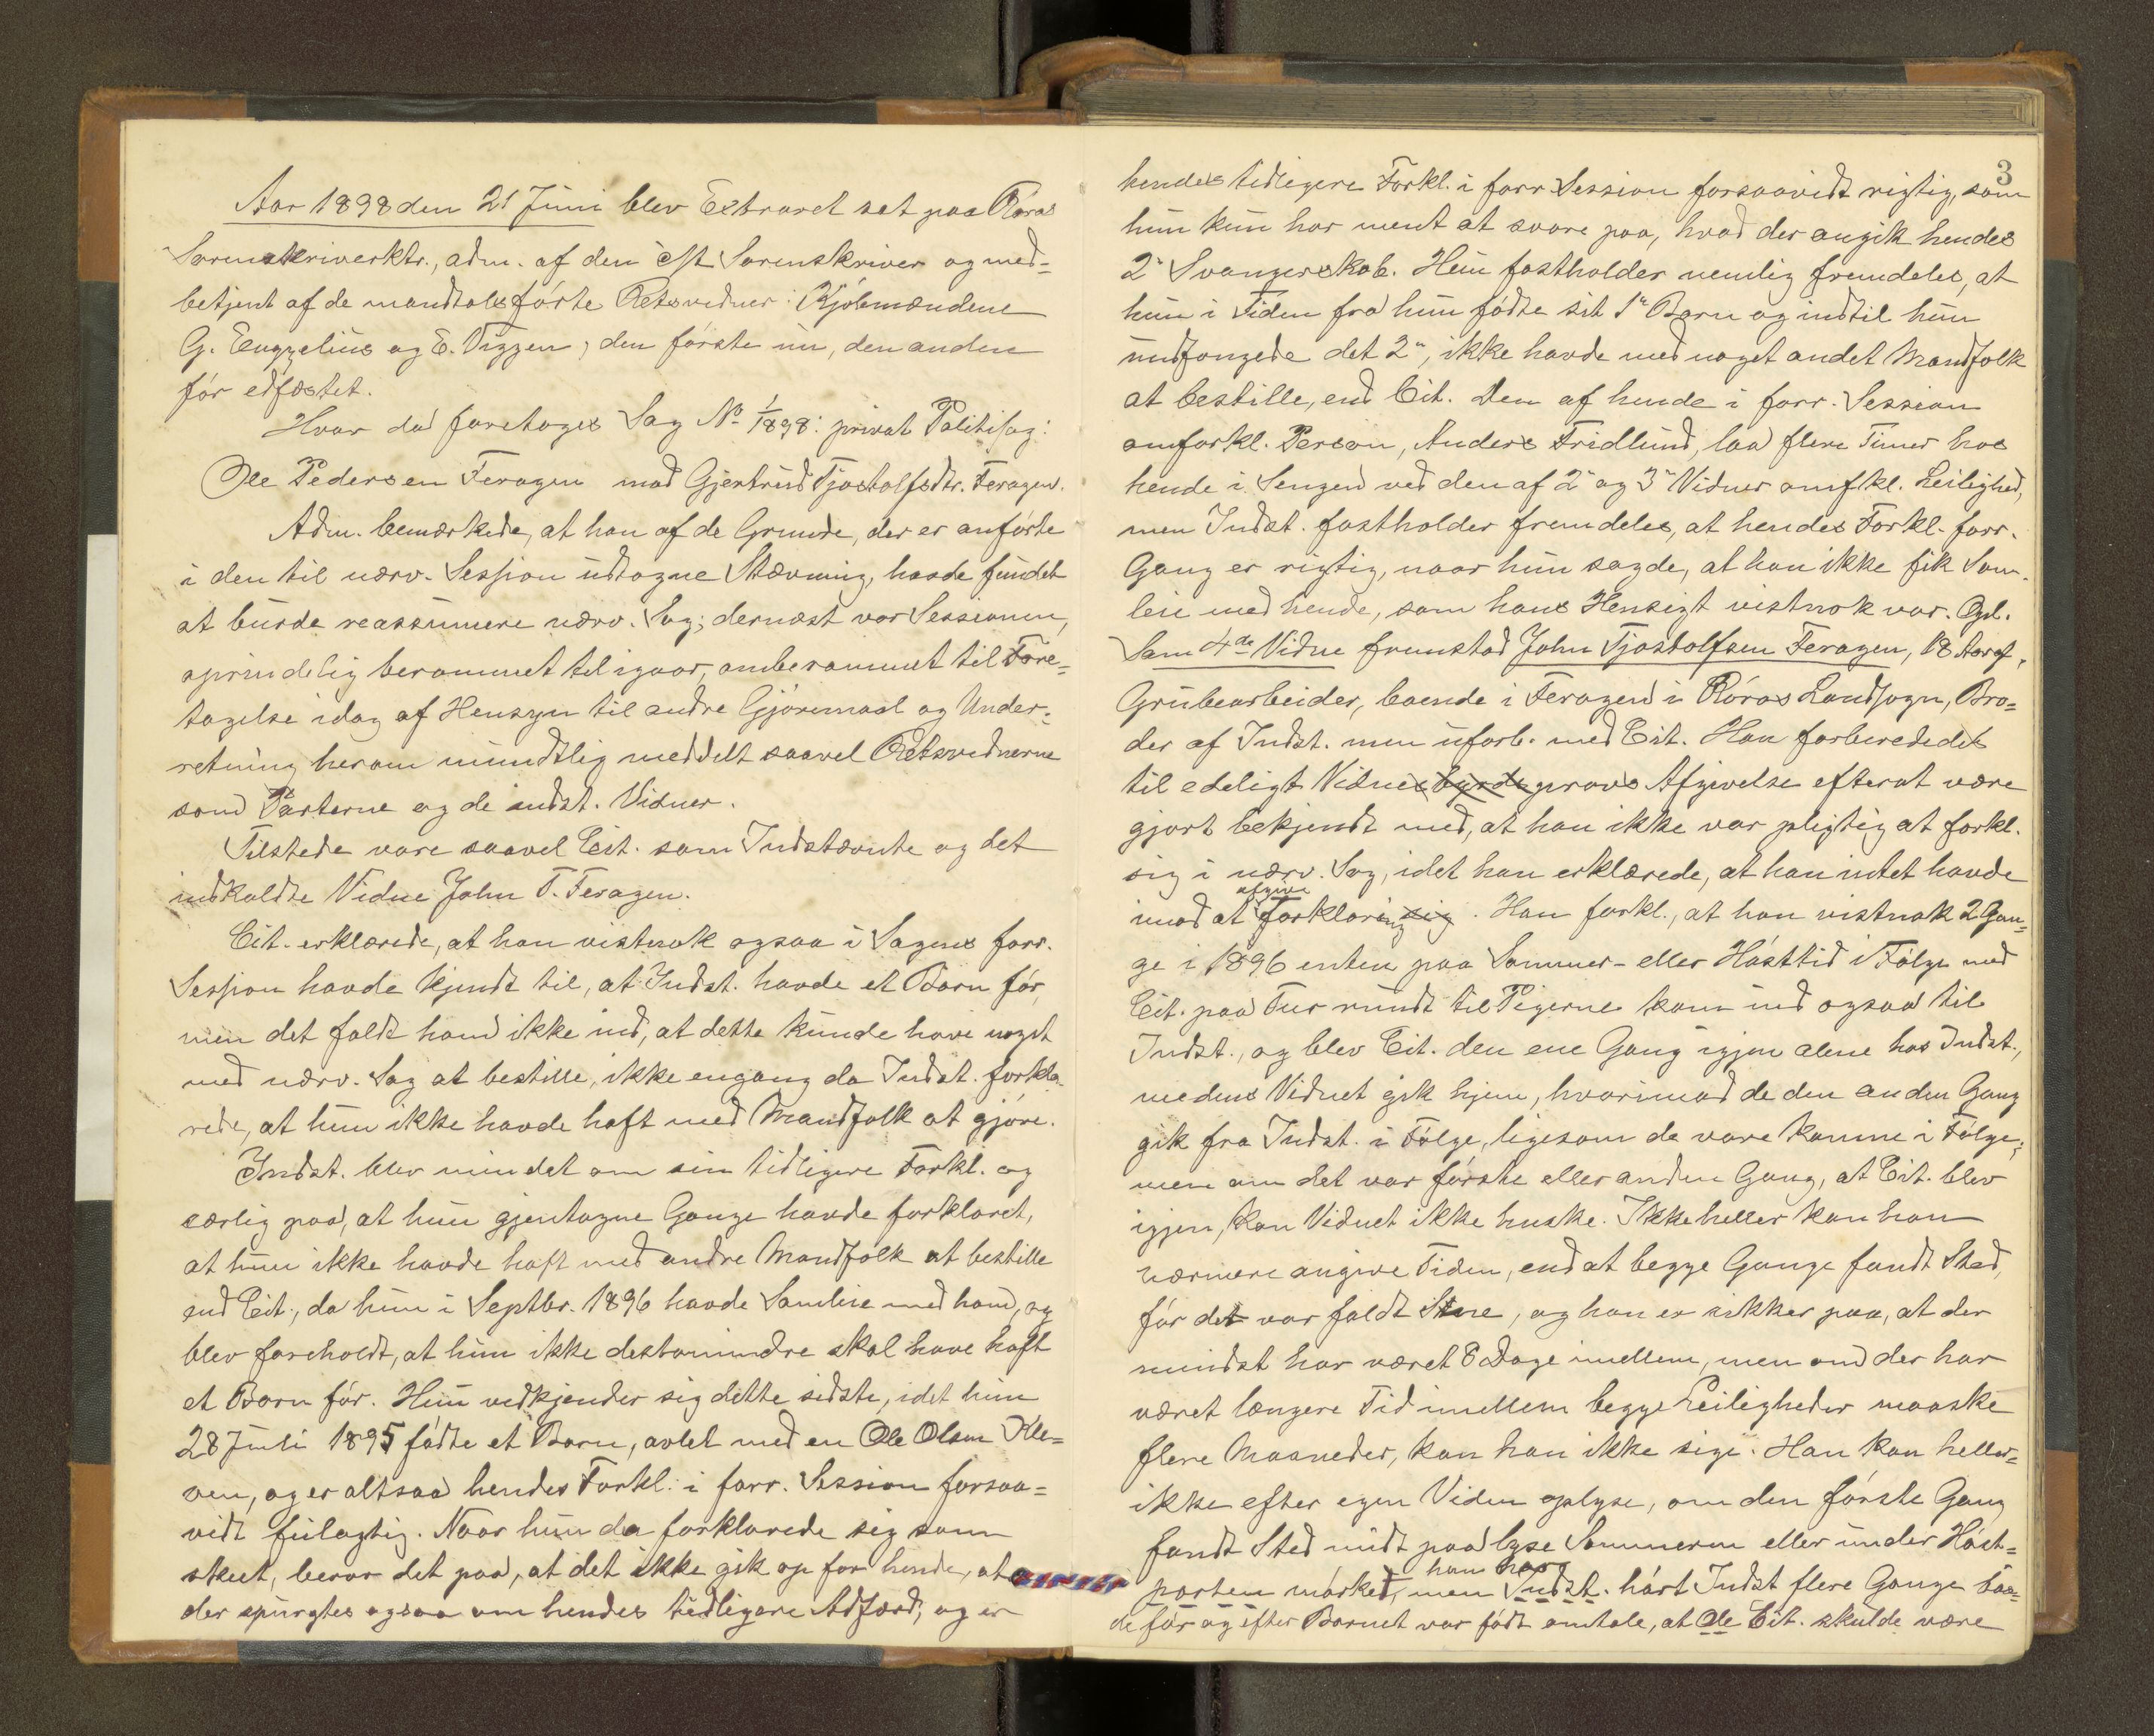 Aar 1898 den 21 Juni blev Extraret sat paa Røros
Sorenskriverktr., adm. af den cst Sorenskriver og med=
betjent af de mandtalsførte Retsvidner: Kjøbmændene
G. Engzelius og E. Viggen, den første nu, den anden
før edfæstet.
Hvor da foretoges Sag No 1/1898: privat Politisag:
Ole Pedersen Feragen mod Gjertrud Tjostolfsdtr. Feragen.
Adm. bemærkede, at han af de Grunde, der er anførte
i den til nærv. Session udtagne Stævning, havde fundet
at burde reassumere nærv. Sag; dernæst var Sessionen,
oprindelig berammet til igaar, omberammet til Fore=
tagelse idag af Hensyn til andre Gjøremaal og Under=
retning herom mundtlig meddelt saavel Retsvidnerne
som Parterne og de indst. Vidner.
Tilstede vare saavel Cit. som Indstævnte og det
indkaldte Vidne John T. Feragen.
Cit. erklærede, at han vistnok ogsaa i Sagens forr.
Session havde kjendt til, at Indst. havde et Barn før,
men det faldt ham ikke ind, at dette kunde have noget
med nærv. Sag at bestille, ikke engang da Indst. forkla-
rede, at hun ikke havde haft med Mandfolk at gjøre.
Indst. blev mindet om sin tidligere Forkl. og
særlig paa, at hun gjentagne Gange havde forklaret,
at hun ikke havde haft med andre Mandfolk at bestille
end Cit., da hun i Septbr. 1896 havde Samleie med ham, og
blev foreholdt, at hun ikke destomindre skal have haft
et Barn før. Hun vedkjender sig dette sidste, idet hun
28 Juli 1895 fødte et Barn, avlet med en Ole Olsen Kle=
ven, og er altsaa hendes Forkl. i forr. Session forsaa=
vidt feilagtig. Naar hun da forklarede sig som
skeet, beror det paa, at det ikke gik op for hende, at
der spurgtes ogsaa om hendes tidligere Adfærd, og er
3
hendes tidligere Forkl. i forr. Session forsaavidt rigtig, som
hun kun har ment at svare paa, hvad der angik hendes
2" Svangerskab. Hun fastholder nemlig fremdeles, at
hun i Tiden fra hun fødte sit 1" Barn og indtil hun
undfangede det 2", ikke havde med noget andet Mandfolk
at bestille, end Cit. Den af hende i forr. Session
omforkl. Person, Anders Fridlund, laa flere Timer hos
hende i Sengen ved den af 2" og 3" Vidner omfkl. Leilighed,
men Indst. fastholder fremdeles, at hendes Forkl. forr.
Gang er rigtig, naar hun sagde, at han ikke fik Sam-
leie med hende, som hans Hensigt vistnok var. Opl.
Som 4de Vidne fremstod John Tjostolfsen Feragen, 18 Aar gl.,
Grubearbeider, boende i Feragen i Røros Landsogn, Bro=
der af Indst. men uforb. med Cit. Han forberededes
til edeligt Vidnesbyrds provs Afgivelse efterat være
gjort bekjendt med, at han ikke var pligtig at forkl.
sig i nærv. Sag, idet han erklærede, at han intet havde
imod at afgive Forklaring sig. Han forkl., at han vistnok 2 Gan=
ge i 1896 enten paa Sommer- eller Høsttid i Følge med
Cit. paa Tur rundt til Pigerne kom ind ogsaa til
Indst., og blev Cit. den ene Gang igjen alene hos Indst.,
medens Vidnet gik hjem, hvorimod de den anden Gang
gik fra Indst. i Følge, ligesom de vare komne i Følge;
men om det var første eller anden Gang, at Cit. blev
igjen, kan Vidnet ikke huske. Ikke heller kan han
nærmere angive Tiden, end at begge Gange fandt Sted,
før det var faldt Sne, og han er sikker paa, at der
mindst har været 8 Dage imellem, men om der har
været længere Tid imellem begge Leiligheder maaske
flere Maaneder, kan han ikke sige. Han kan heller=
ikke efter egen Viden oplyse, om den første Gang
fandt Sted midt paa lyse Sommeren eller under Høst=
parten mørket, men han har Indst. hørt Indst flere Gange baa=
de før og efter Barnet var født omtale, at de Cit. skulde være